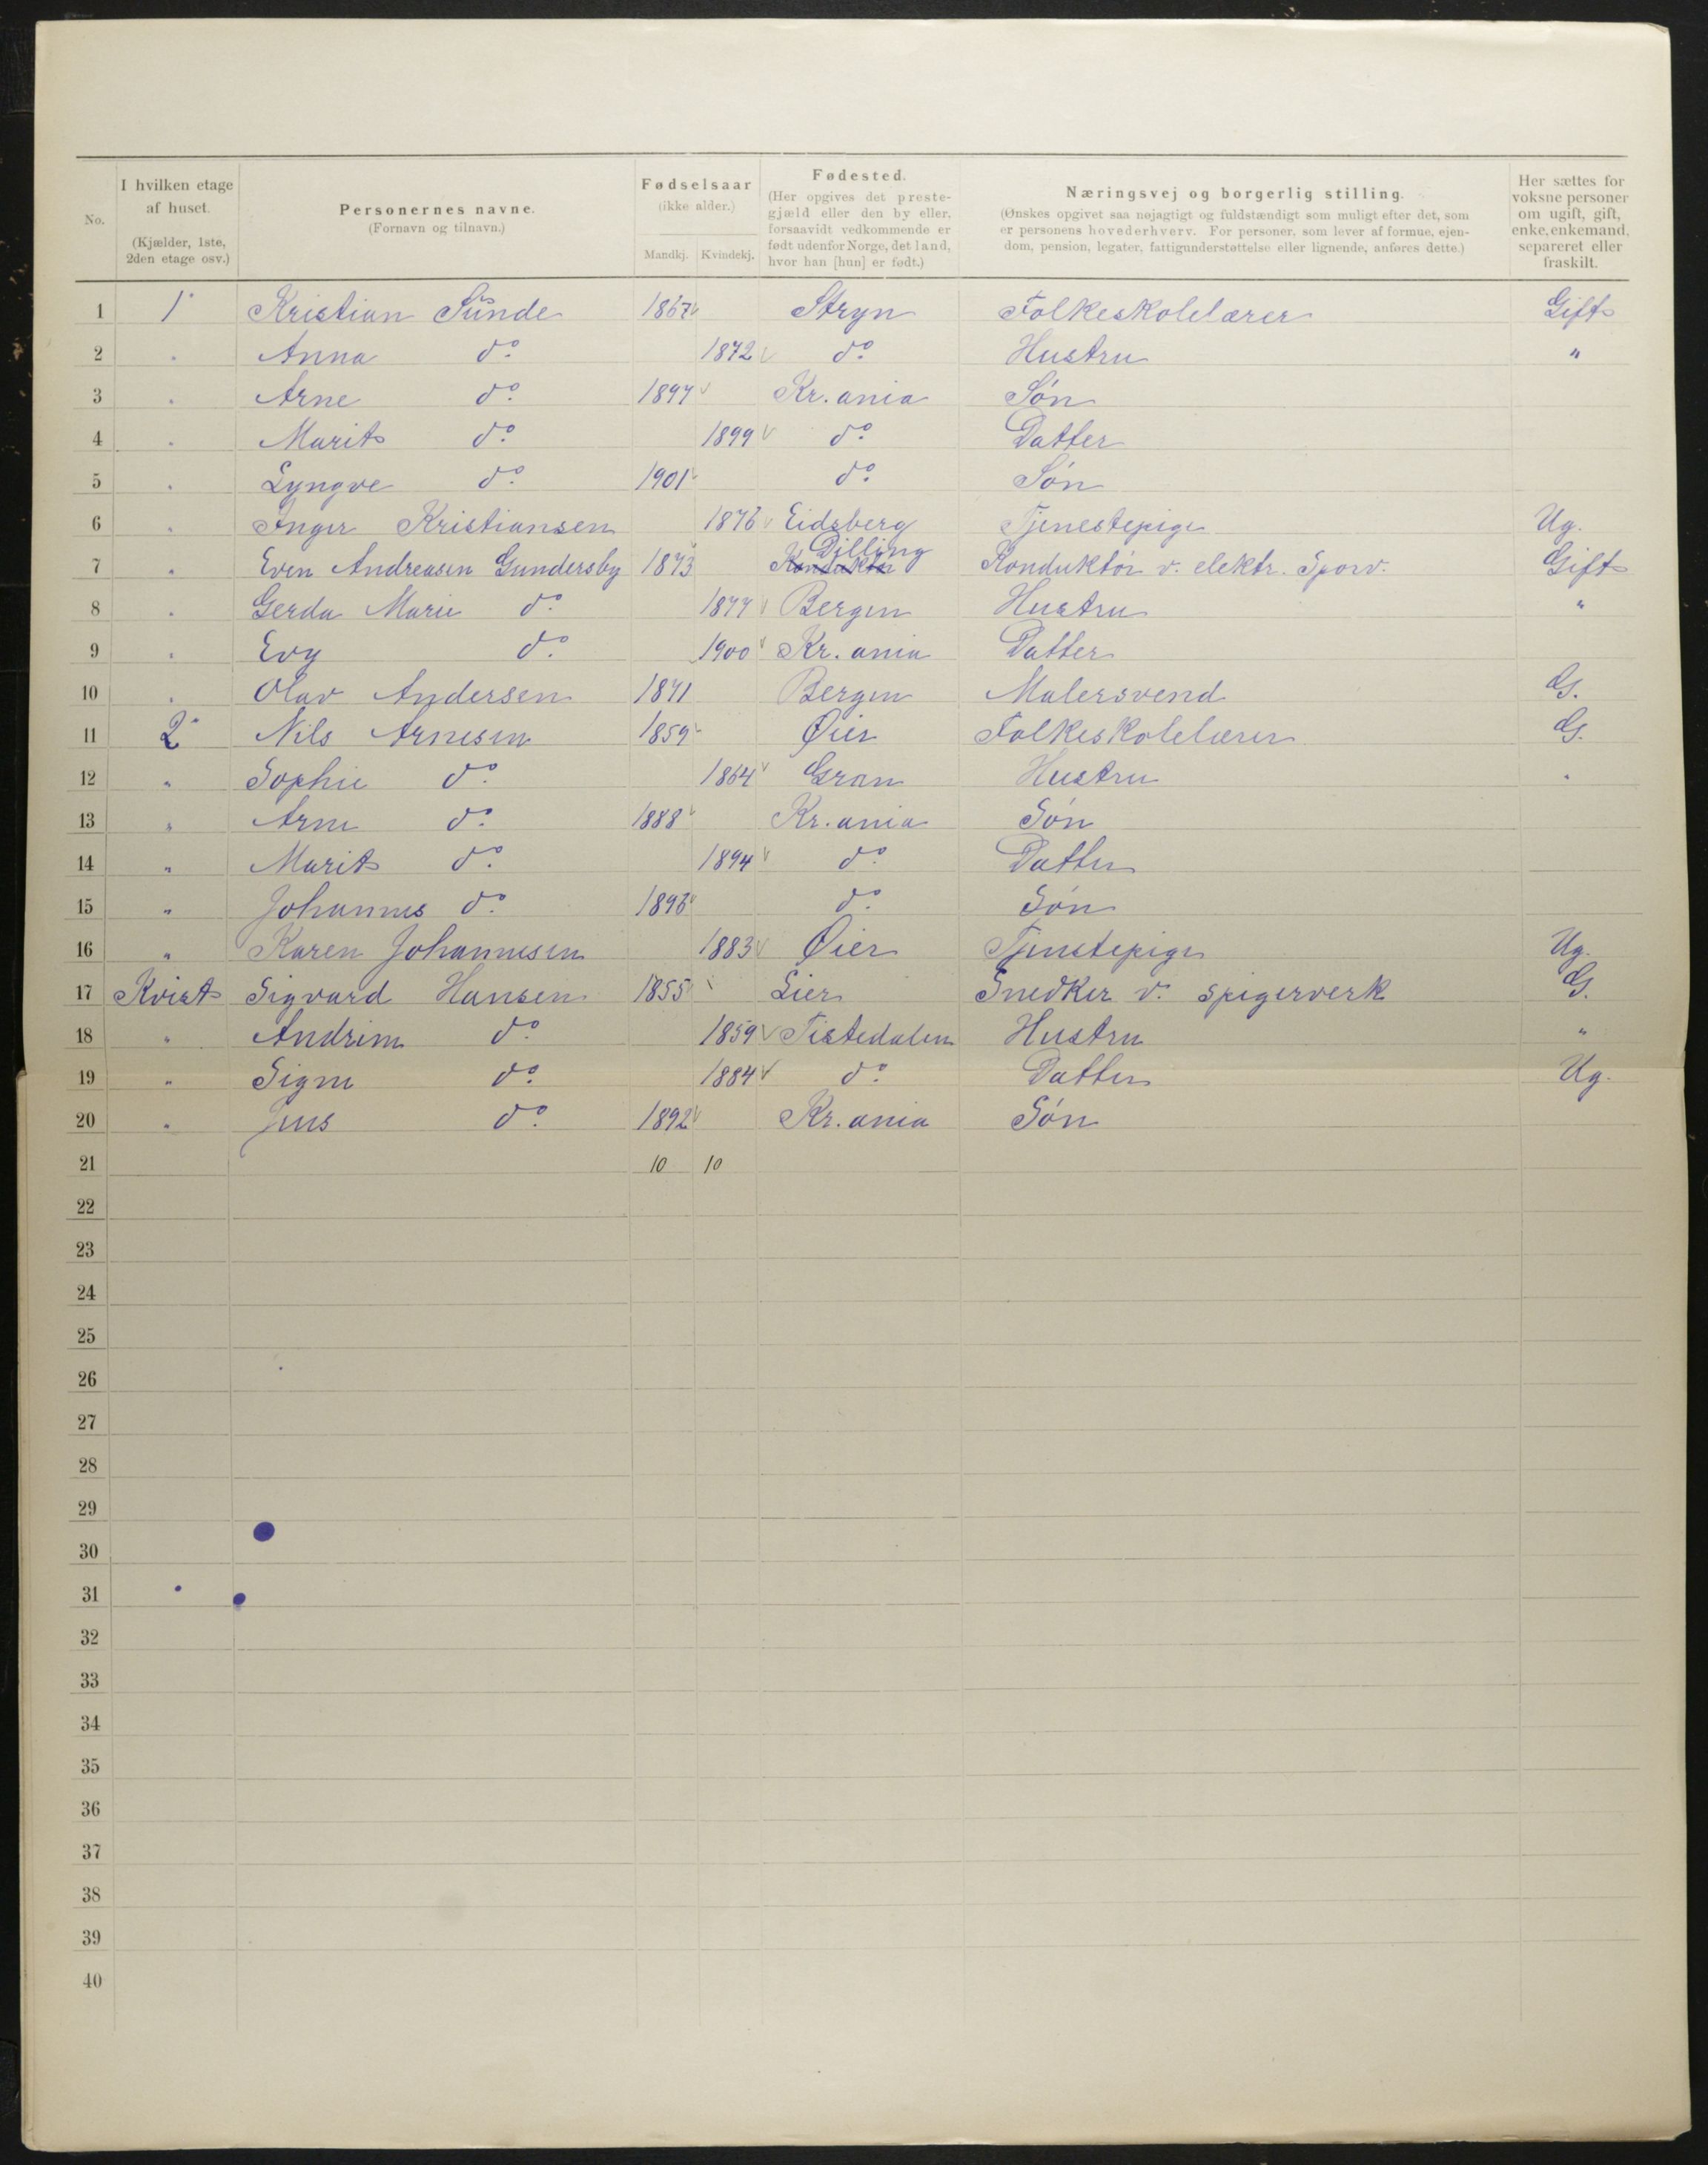 No. | I hvilken etage af huset. (Kjælder, 1ste, 2den etage osv.) | Personernes navne. (Fornavn og tilnavn.) | Fødselsaar (ikke alder.) Mandkj. | Kvindekj. | Fødested. (Her opgives det prestegjæld eller den by eller, forsaavidt vedkommende er født udenfor Norge, det land, hvor han [hun] er født.) | Næringsvej og borgerlig stilling. (Ønskes opgivet saa nøjagtigt og fuldstændigt som muligt efter det, som er personens hovederhverv. For personer, som lever af formue, ejendom, pension, legater, fattigunderstøttelse eller lignende, anføres dette.) | Her sættes for voksne personer om ugift, gift, enke, enkemand, separeret eller fraskilt.
1 | 1 | Kristian Sunde | 1867 | | Stryn | Folkeskolelærer | Gift
2 | " | Anna do. | | 1872 | do. | Hustru | "
3 | " | Arne do. | 1897 | | Kr.ania | Søn
4 | " | Marit do. | | 1899 | do. | Datter
5 | " | Lyngve do. | 1901 | | do. | Søn
6 | " | Inger Kristiansen | | 1876 | Eidsberg | Tjenestepige | Ug.
7 | " | Even Andreasen Gundersby | 1873 | | Konduktør Dilling | Konduktør v. elektr. Sporv. | Gift
8 | " | Gerda Marie do. | | 1877 | Bergen | Hustru | "
9 | " | Evy do. | | 1900 | Kr.ania | Datter
10 | " | Olav Andersen | 1871 | | Bergen | Malersvend | G.
11 | 2 | Nils Arnesen | 1859 | | Øier | Folkeskolelærer | G.
12 | " | Sophie do. | | 1864 | Gran | Hustru | "
13 | " | Arne do. | 1888 | | Kr.ania | Søn
14 | " | Marit do. | | 1894 | do. | Datter
15 | " | Johannes do. | 1896 | | do. | Søn
16 | " | Karen Johannesen | | 1883 | Øier | Tjenstepige | Ug.
17 | Kvist | Sigvard Hansen | 1855 | | Lier | Snedker v. spigerverk | G.
18 | " | Andrine do. | | 1859 | Tistedalen | Hustru | "
19 | " | Signe do. | | 1884 | do. | Datter | Ug.
20 | " | Jens do. | 1892 | | Kr.ania | Søn
21 | | | 10 | 10
22
23
24
25
26
27
28
29
30
31
32
33
34
35
36
37
38
39
40